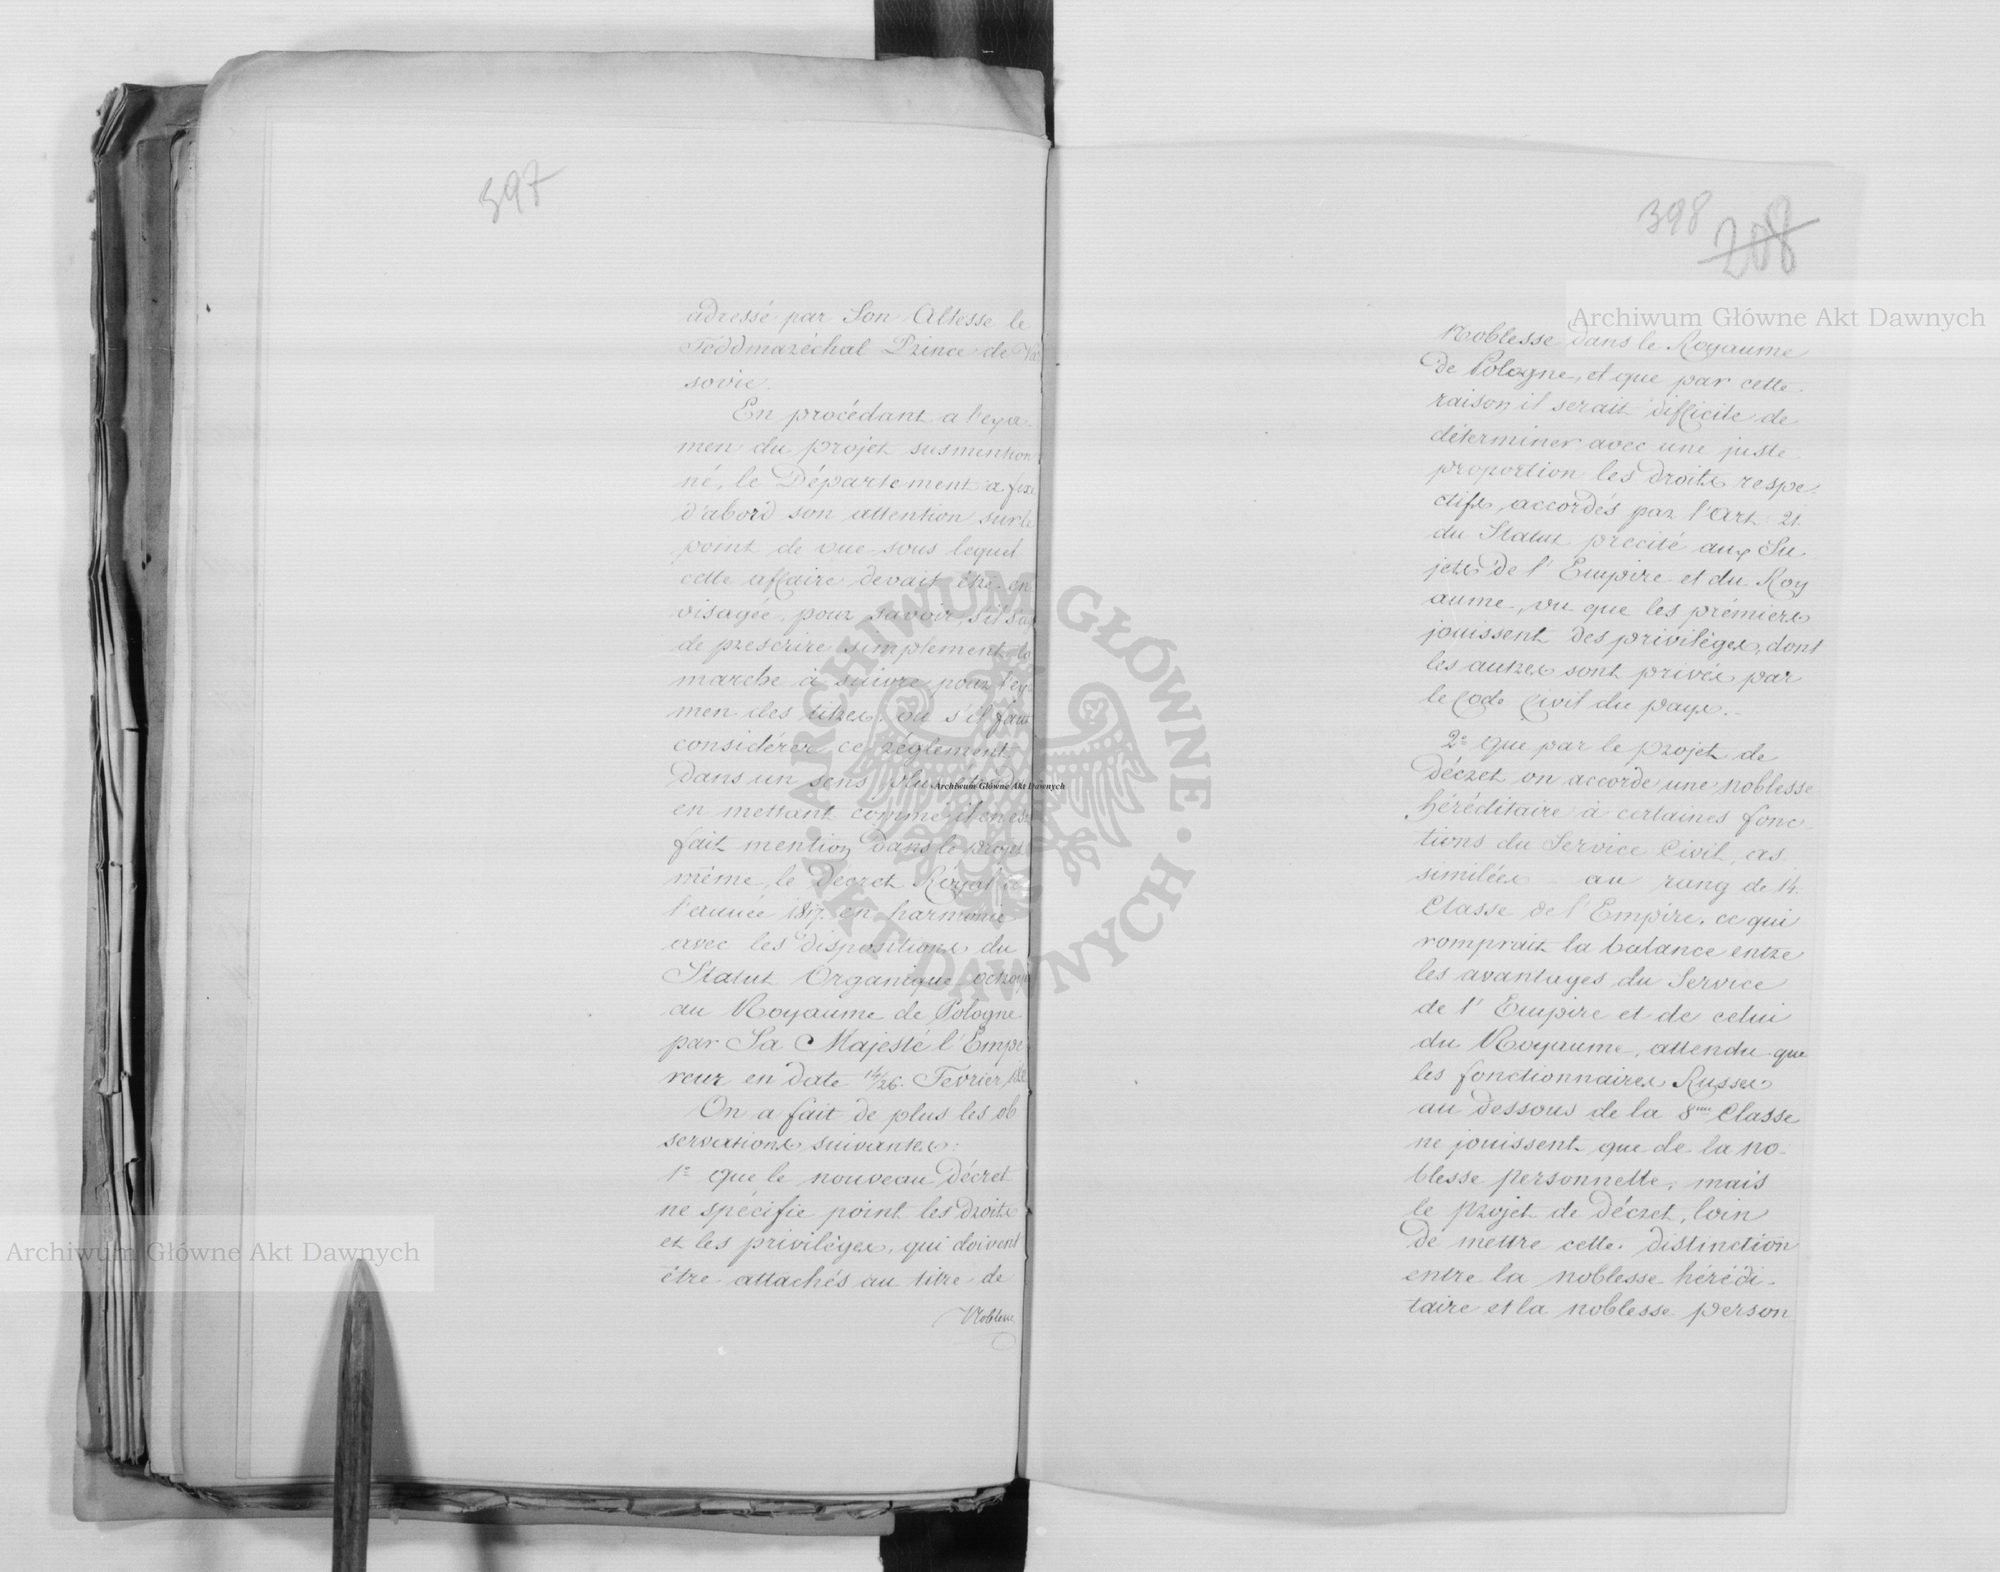 397
adressé par Son Altesse le
Feddmaréchal Prince de Va
sovie.
En procédant a l'exa-
men du projet susmention
né, le Département a fixé
d'abord son attention sur le
point de vue sous lequel
cette affaire devait être en
visagée, pour savoir, s'il s'a
de prescrire simplement la
marche à suivre pour l'exa
men des titres, ou s'il faut
considérer ce réglement
dans un sens plus
en mettant comme il en est
fait mention dans le projet
même, le Décret Royal de
l'année 1817. en harmonie
avec les dispositions du
Statut Organique octroyé
au Royaume de Pologne
par Sa Majesté l'Empe
reur en date 14/26. Fevrier 183
On a fait de plus les ob
servations suivantes:
1° que le nouveau Décret
ne spécifie point les droits
et les privilèges, qui doivent
être attachés au titre de
Noblesse
398 208
Noblesse dans le Royaume
de Pologne, et que par cette
raison, il serait difficile de
déterminer avec une juste
proportion les droits respe
ctifs, accordés par l'Art 21.
du Statut precité aux Su
jets de l'Empire et du Roy
aume, vu que les prémiers
jouissent des privilèges, dont
les autres sont privés par
le Code Civil du pays.-
2° que par le projet de
Décret on accorde une noblesse
héréditaire à certaines fonc
tions du Service Civil, as
similées au rang de 14
Classe de l'Empire, ce qui
romprait la balance entre
les avantages du Service
de l'Empire et de celui
du Royaume, attendu que
les fonctionnaires Russes
au dessous de la 8me Classe
ne jouissent que de la no-
blesse personnelle, mais
le projet de Décret, loin
de mettre cette distinction
entre la noblesse hérédi-
taire et la noblesse person
Archiwum Główne Akt Dawnych
Archiwum Główne Akt Dawnych
Archiwum Główne Akt Dawnych
ARCHIWUM GŁÓWNE · AKT DAWNYCH ·